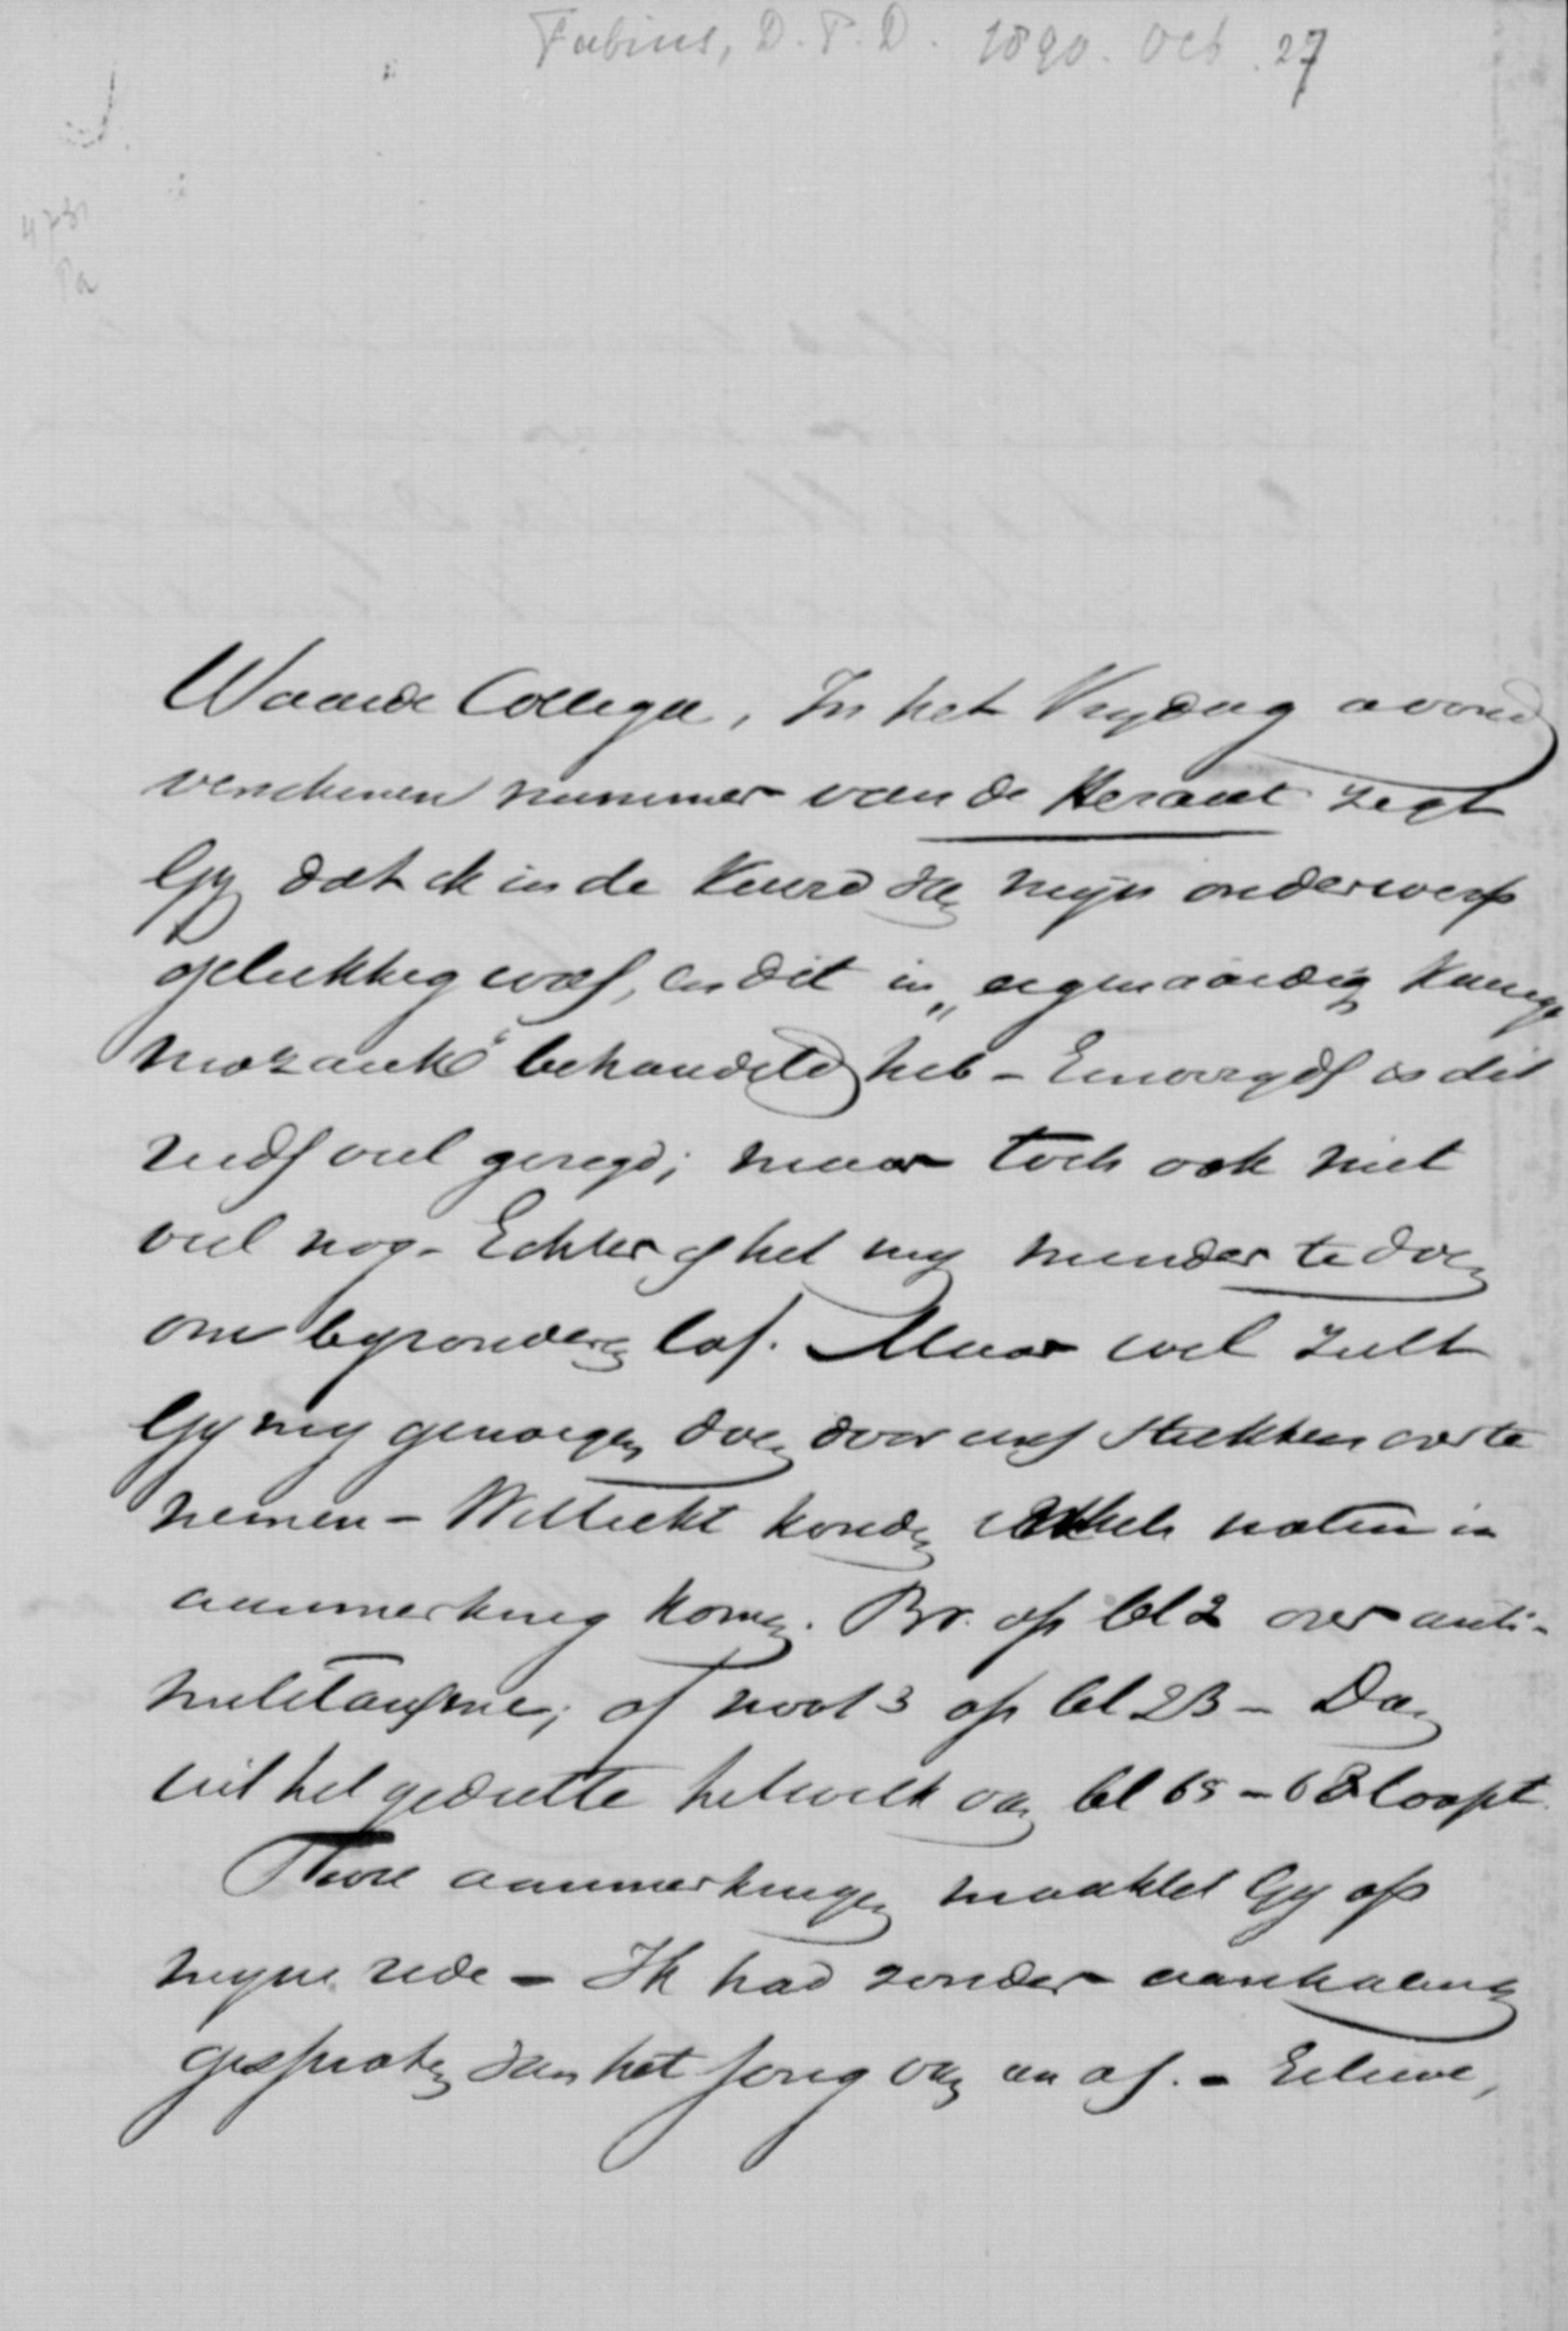 Fabius, D.P.D. 1890. Oct. 27
Waarde Collega, In het Vrydag avond
verschenen nummer van de Heraut zegt
Gy dat ik in de keuze van mijn onderwerp
gelukkig was, en dit in „eigenaardig
mozaiek" behandeld heb - Eenerzyds is dit
veel gezegd; maar toch ook niet
veel nog - Echter is het my minder te doen
om byzonderen lof. Maar wel zult
Gy my genoegen doen door stukken over te
nemen - Wellicht konden enkele noten in
aanmerking komen. Bv. op bl 2 over anti-
militarisme; of noot 3 op bl 23 - Dan
uit het gedeelte hetwelk van bl 65 - 68 loopt.
Twee aanmerkingen maaktet Gy op
myne rede - Ik had zonder aanhaling
gesproken van het jong van en af. -